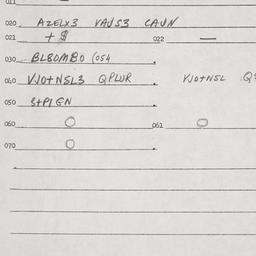 011
020 AZELX3 VAJS3 CAJN
021 + $ 022 —
030 BL80MB0 (054
040 VJO+NSL3 QPLWR VJO+NSL
050 S+PIGN
060 O 061 O
070 O